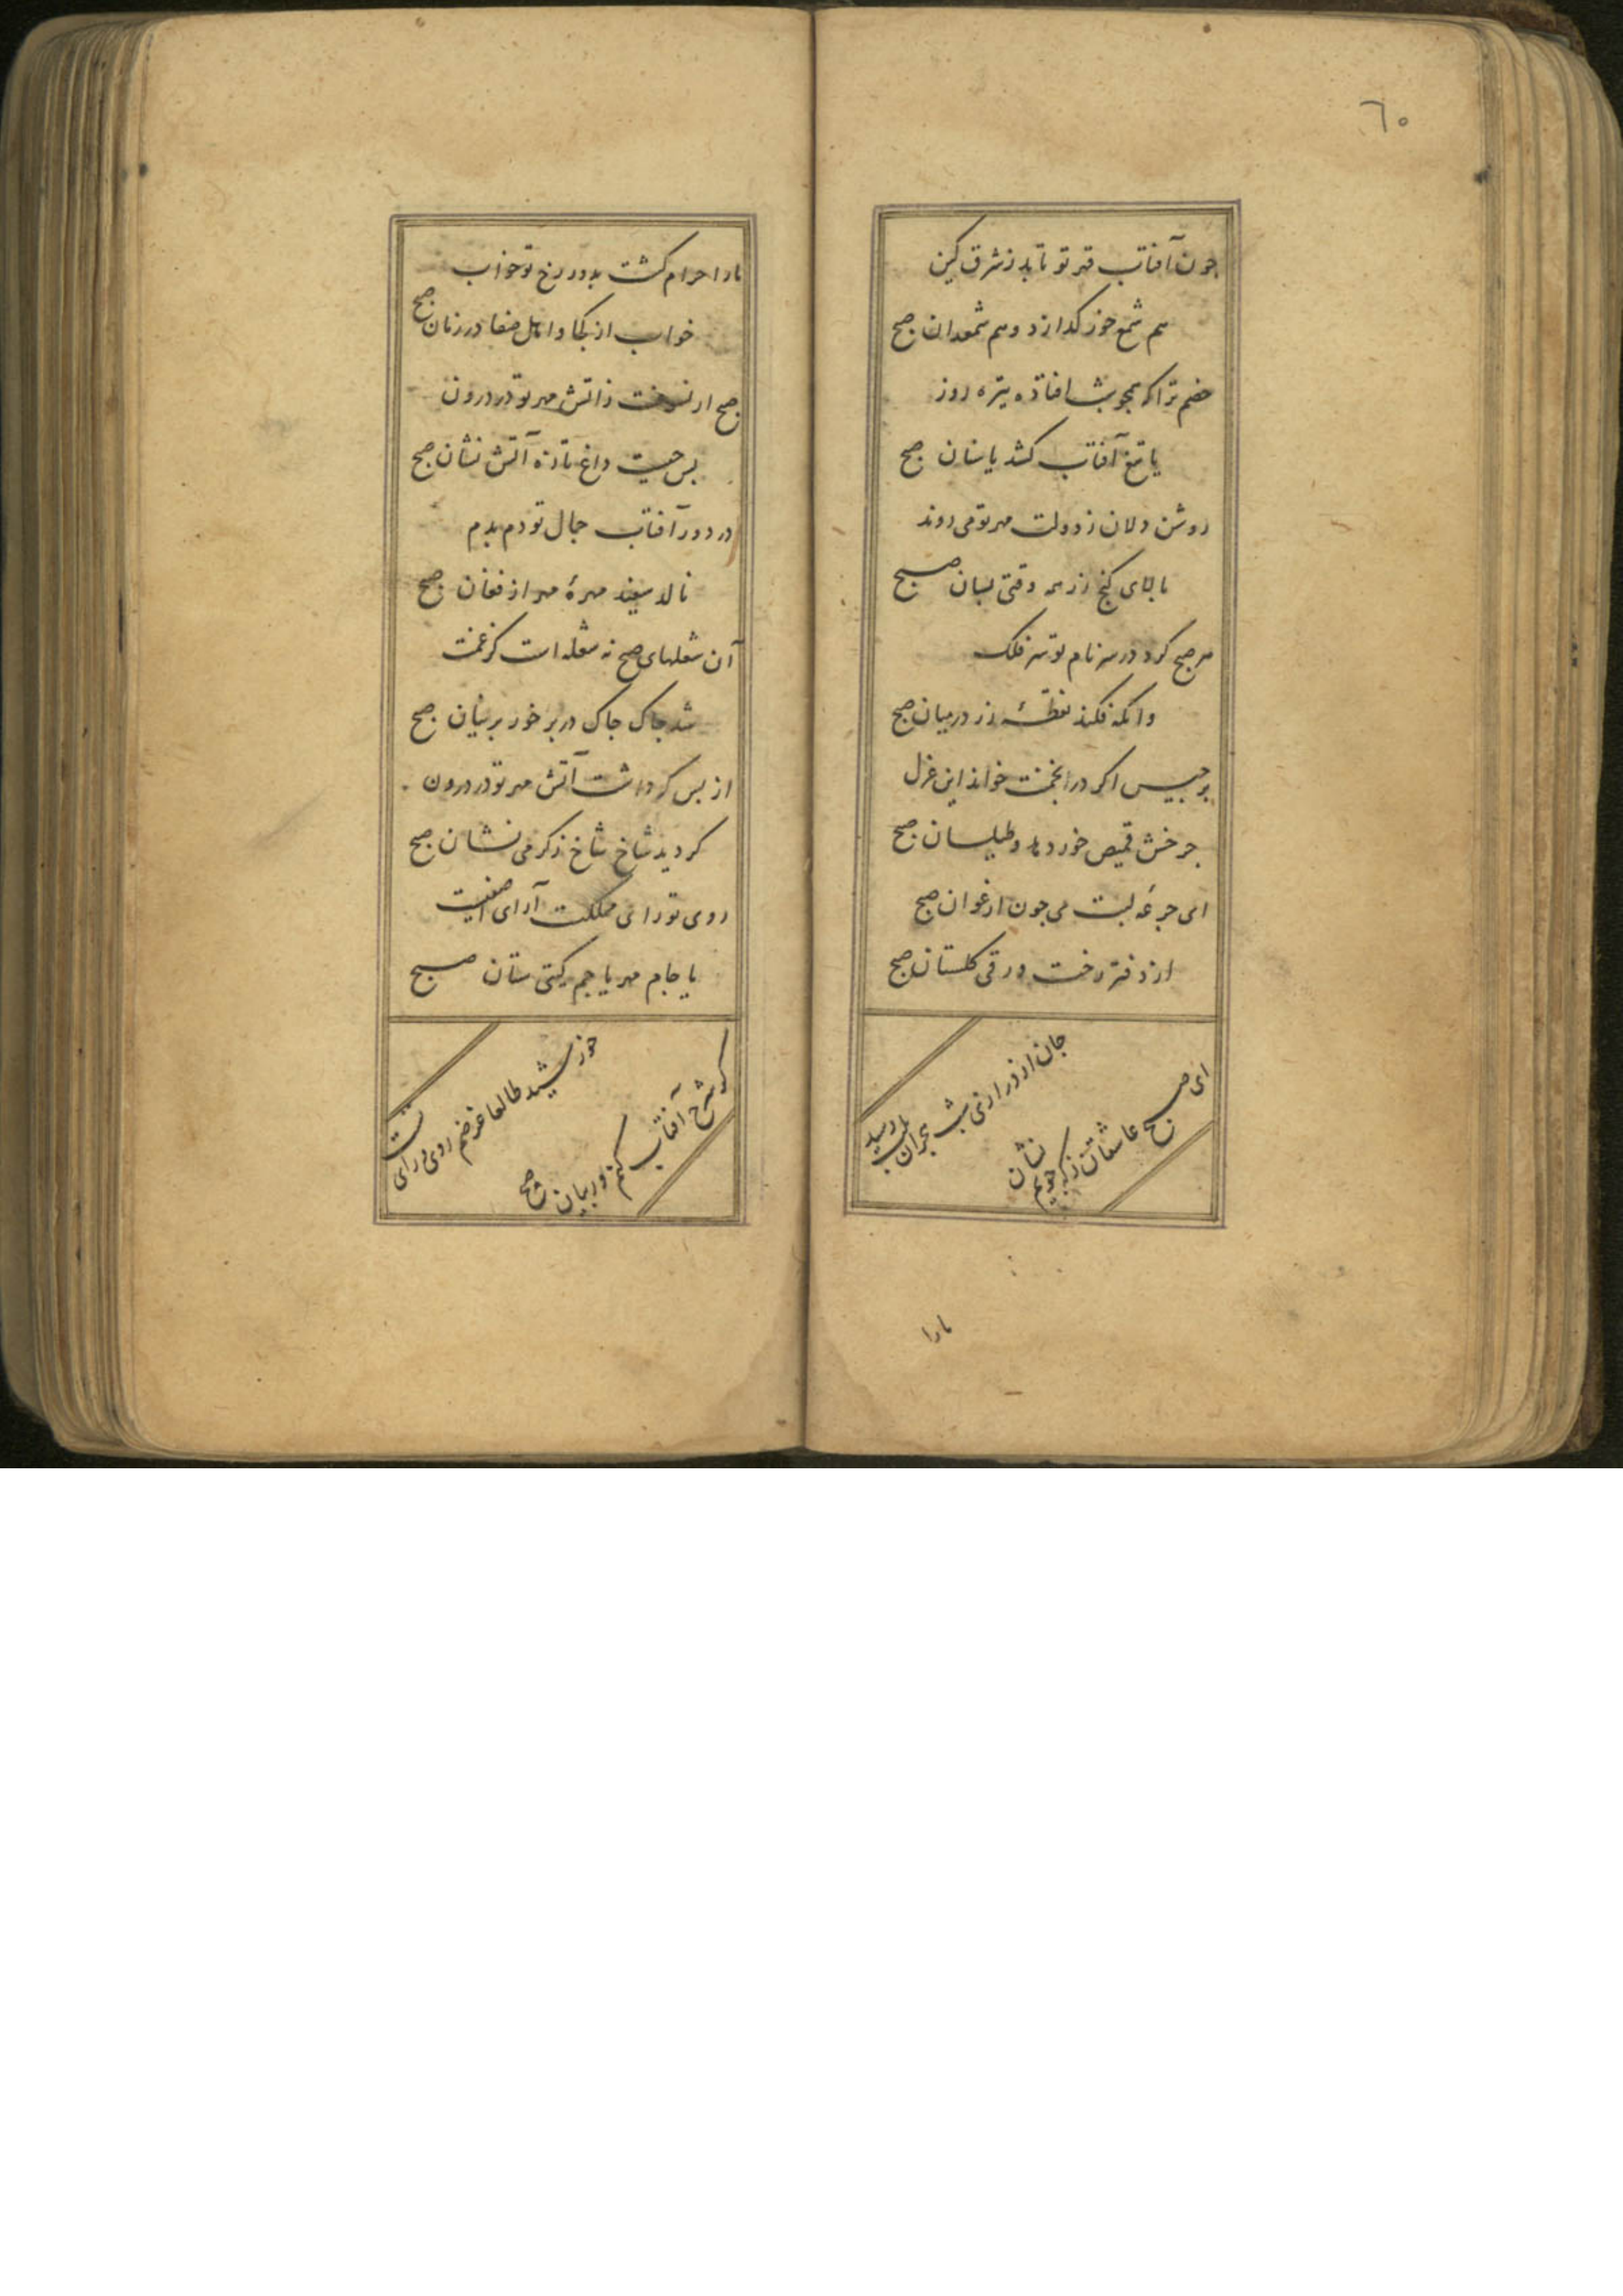 ٦٥
چون آفتاب قهر تو تابد ز شرق کین
هم شمع خور کدازد و هم شمعدان صبح
خصم ترا که همچو شب افتاده تیره روز
یا تیغ آفتاب کشد یا سنان صبح
روشن دلان ز دولت مهر تو می روند
بالای کنج زر همه وقتی بسان صبح
هر صبح کرد در سر نام تو سر فلک
وانکه فکند نقطهٔ زر در میان صبح
برجیس اکر در انجمنت خواند این غزل
چرخش قمیص خور دهد و طیلسان صبح
ای جرعهٔ لبت می چون ارغوان صبح
از دفتر رخت ورقی کلستان صبح
جان از درازی شب هجران بلب رسید
ای صبح عاشقان ز که جویم نشان صبح
مارا
مارا حرام کشت بدور رخ تو خواب
خواب از کجا و اهل صفا در زمان صبح
صبح ار نسوخت ز آتش مهر تو در درون
بس چیست داغ تازه آتش نشان صبح
در دور آفتاب جمال تو دم بدم
نالد سفید مهرهٔ مهر از فغان صبح
آن شعلهای صبح نه شعله است کز غمت
شد چاک چاک در بر خور برنیان صبح
از بس که داشت آتش مهر تو در درون
کردید شاخ شاخ ز کرمی نشان صبح
روی تو رای مملکت آرای آصفیت
یا جام مهر یا جم کیتی ستان صبح
خورشید طالعا غرضم روی و رای تست
کر شرح آفتاب کنم ور بیان صبح